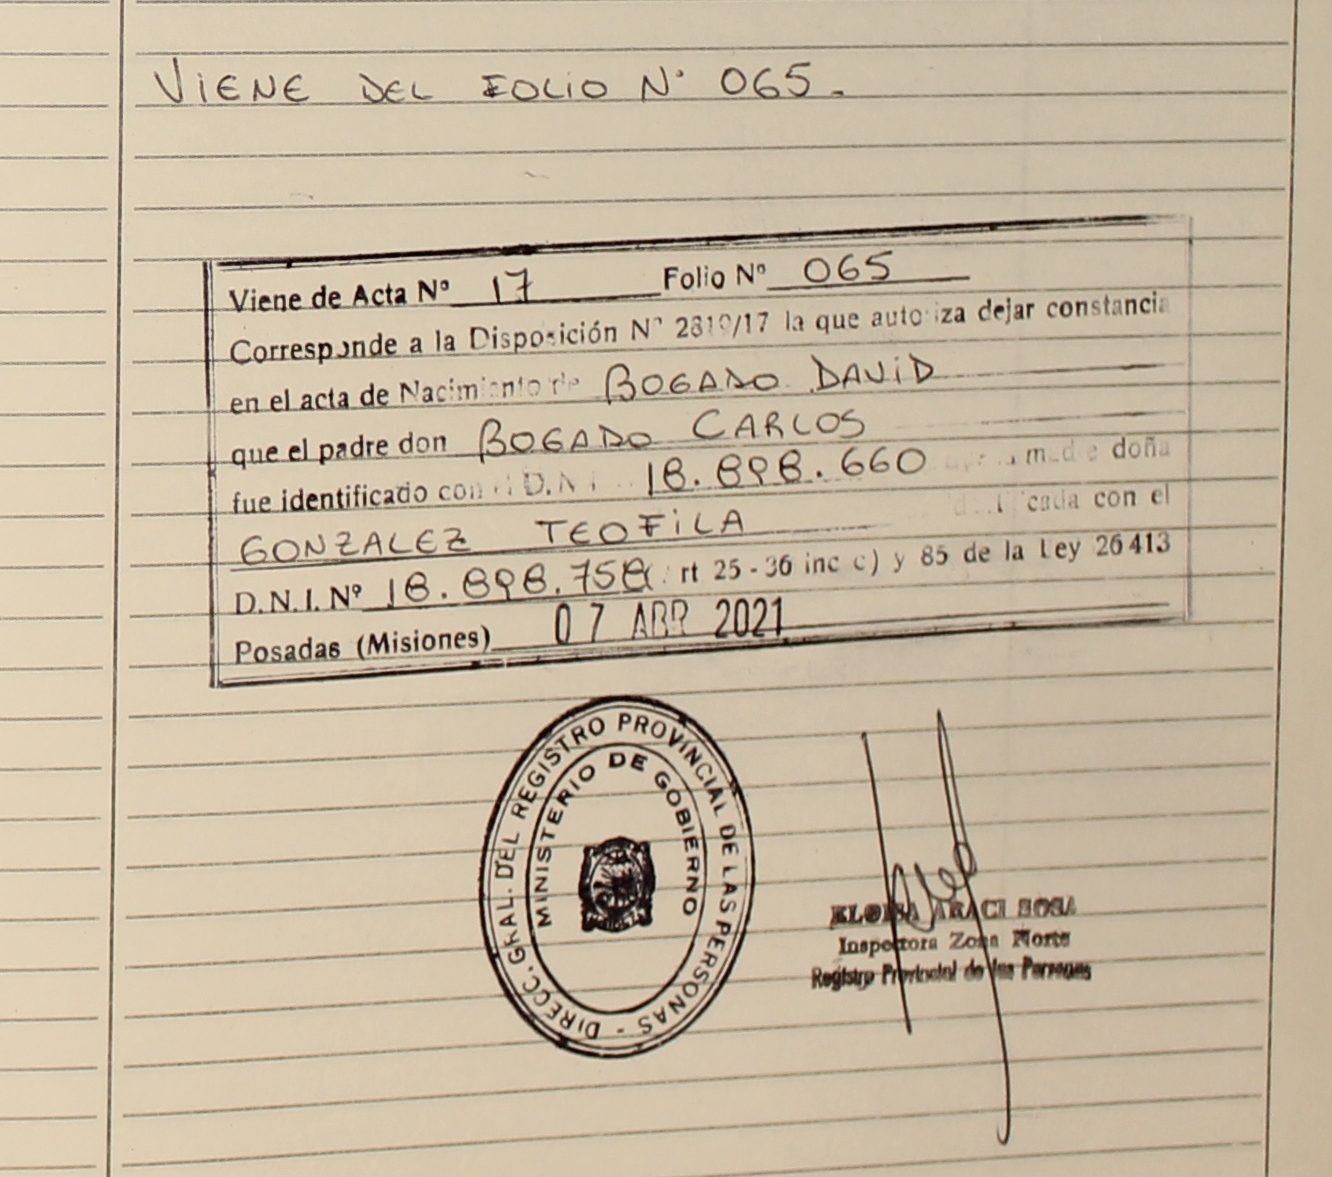 VIENE DEL FOLIO N° 065.
Viene de Acta Nº 17 Folio Nº 065
Corresponde a la Disposición Nº 2819/17 la que autoriza dejar constancia
en el acta de Nacimiento de BOGADO DAVID
que el padre don BOGADO CARLOS
fue identificado con el D.N.I. 18.898.660 madre doña
GONZALEZ TEOFILA con el
D.N.I. Nº 18.898.758 rt 25 - 36 inc c) y 85 de la Ley 26413
Posadas (Misiones) 07 ABR 2021
DIRECC. GRAL. DEL REGISTRO PROVINCIAL DE LAS PERSONAS -
MINISTERIO DE GOBIERNO
ELOISA ARACI SOSA
Inspectora Zona Norte
Registro Provincial de las Personas